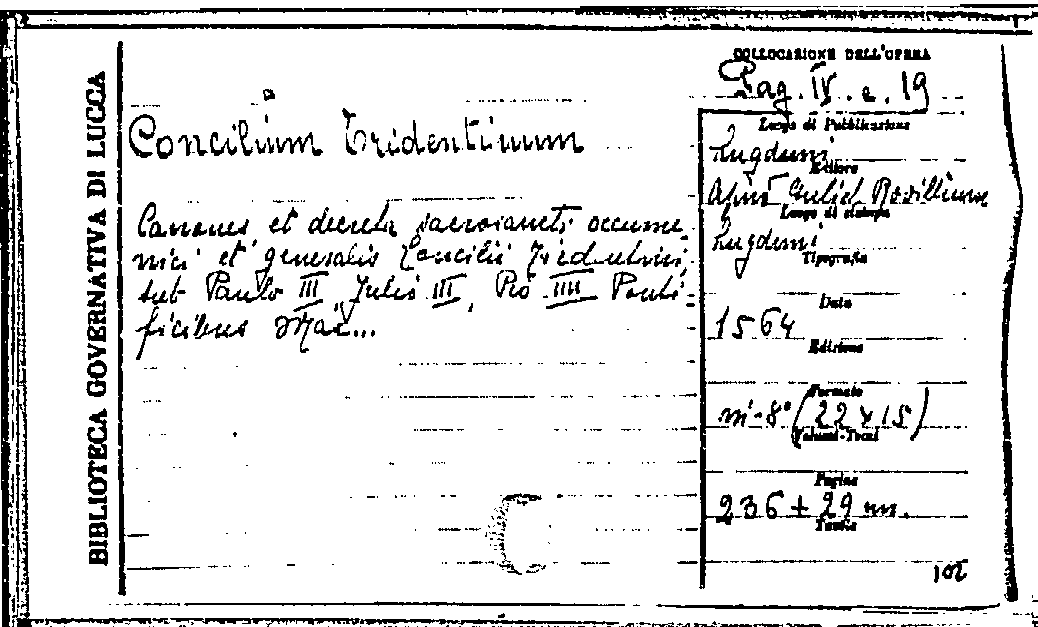 BIBLIOTECA GOVERNATIVA DI LUCCA
Concilium Tridentinum
Canones et decreta sacrosancti oecume
nici et generalis Concilii Tridentini,
sub Paulo III, Julio III, Pio IIII Ponti
ficibus Max...
COLLOCAZIONE DELL'OPERA
Pag. IV. e. 19
Luogo di Pubblicazione
Lugduni
Editore
Apud Guliel. Rovillium
Luogo di stampa
Lugduni
Tipografia
Data
1564
Edizione
Formato
in-8° (22x15)
Volumi-Tomi
Pagine
236 + 29 nn.
Tavole
102